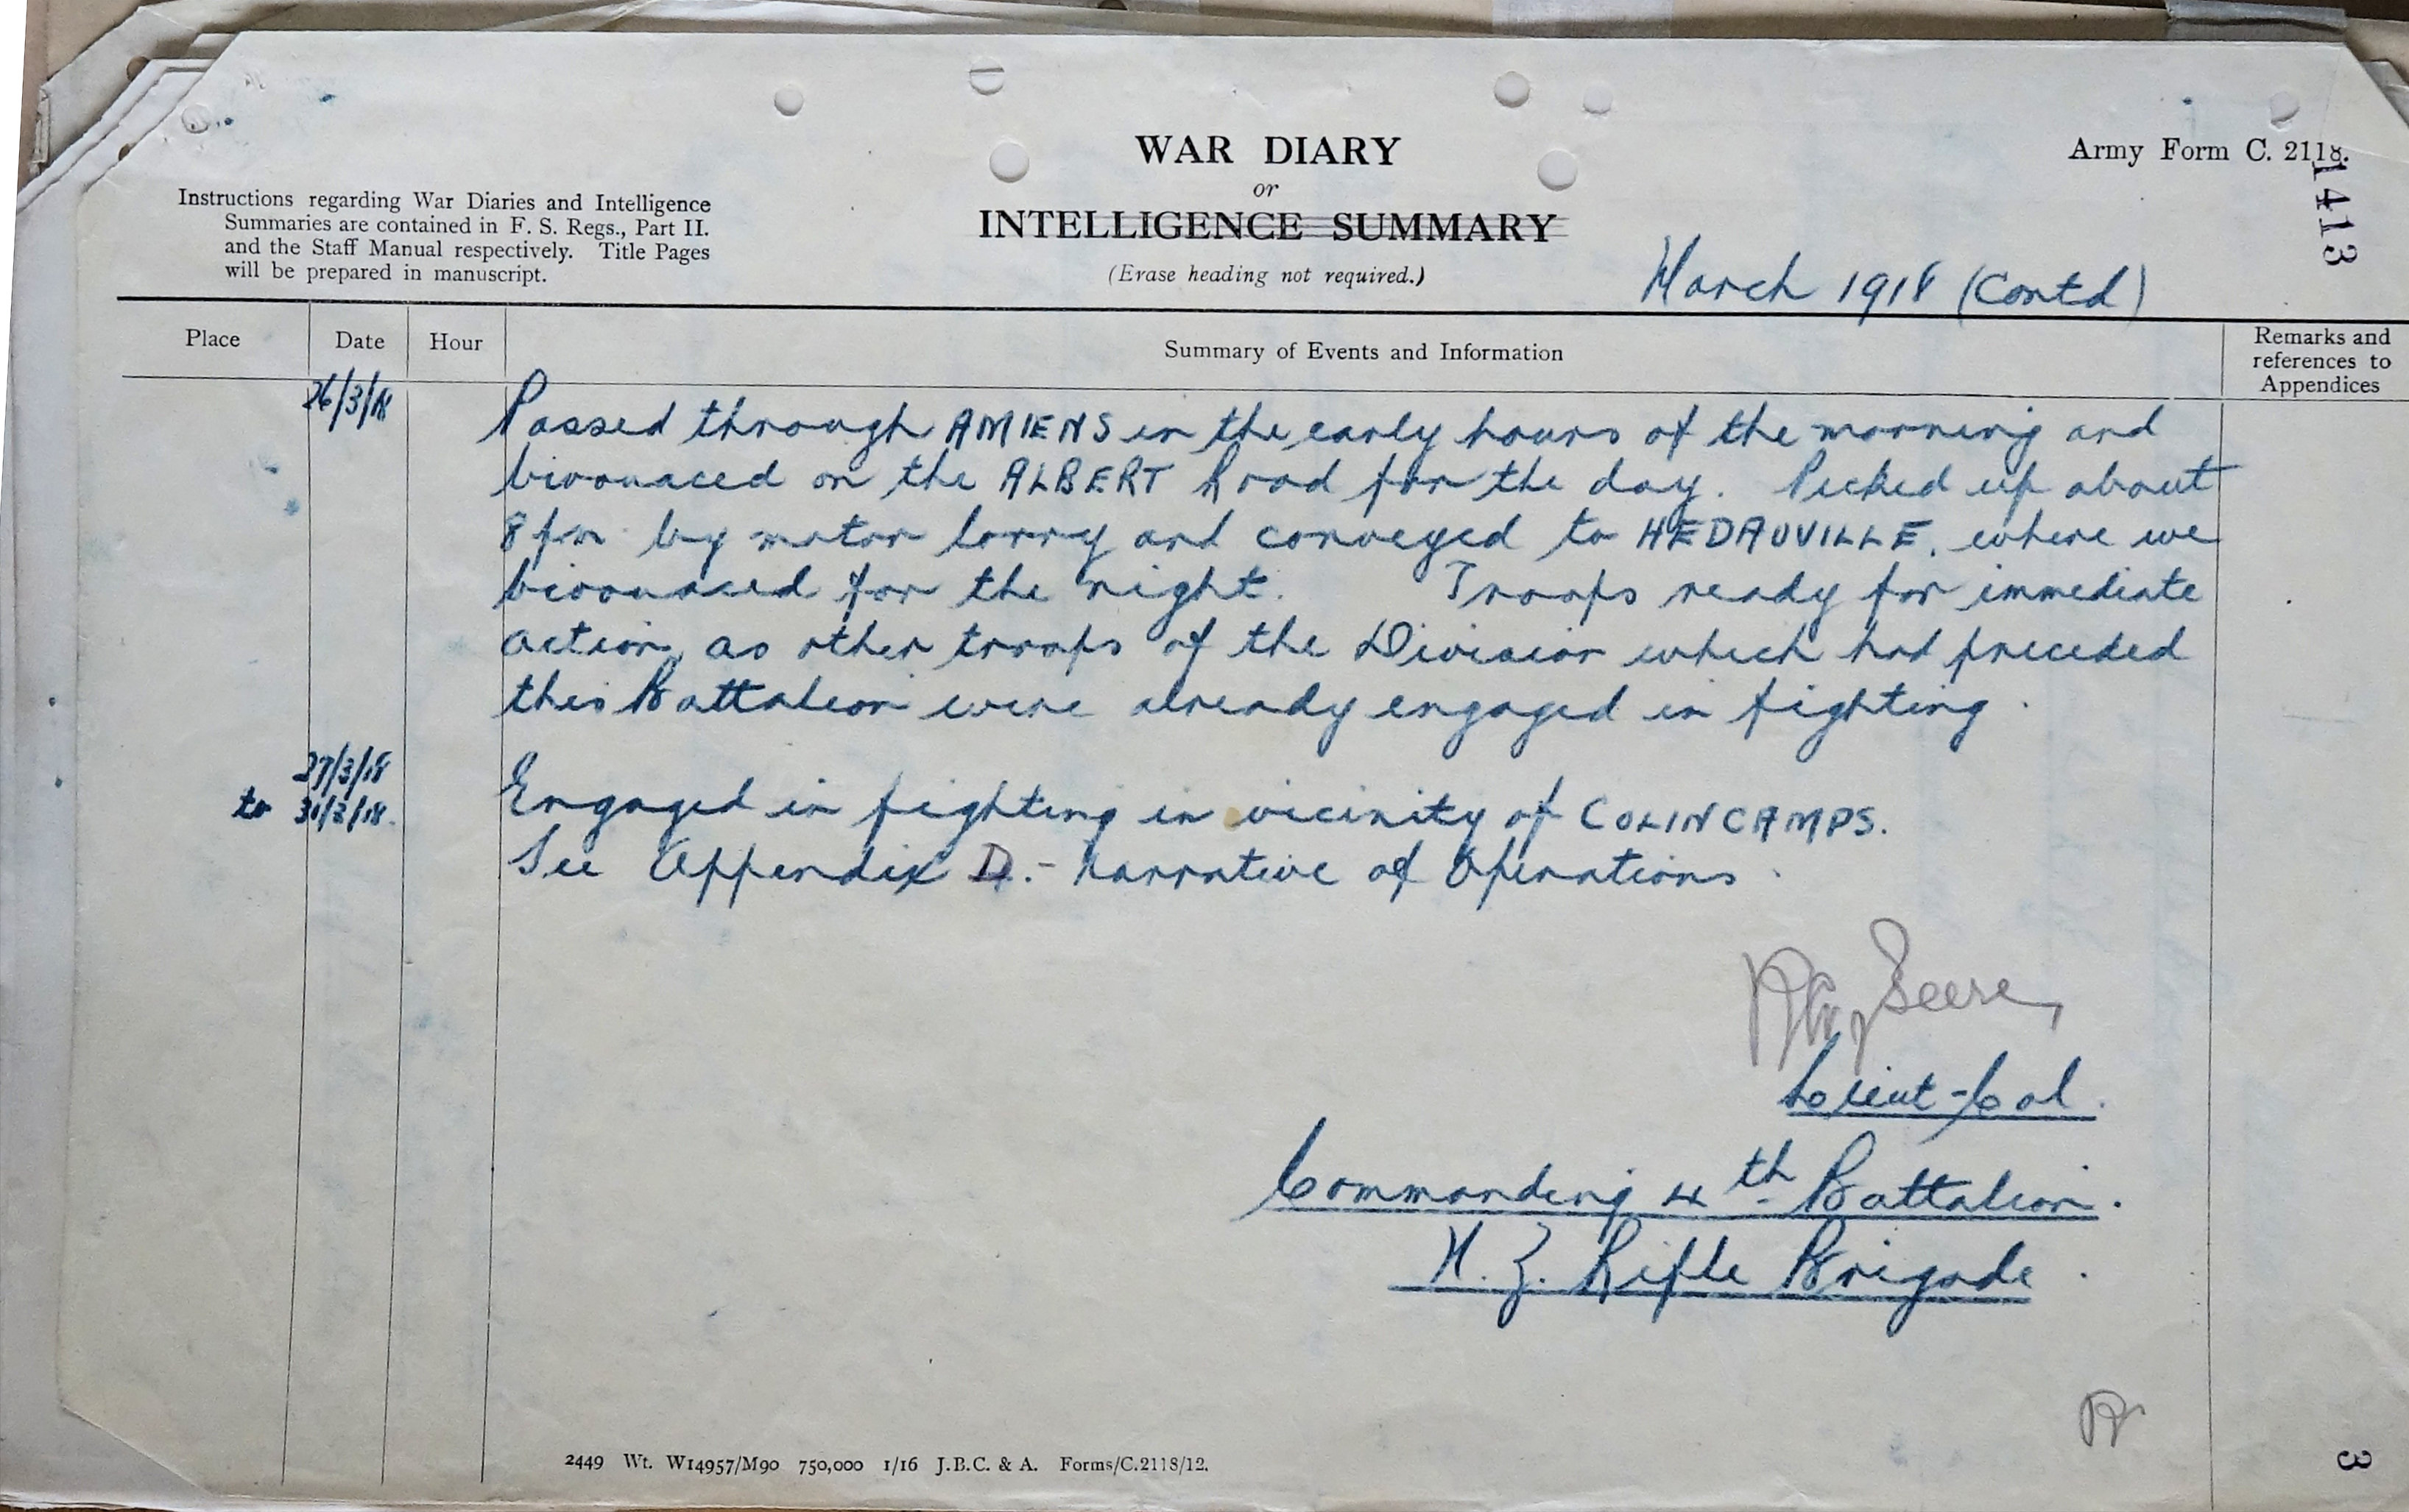 WAR DIARY
or
INTELLIGENCE SUMMARY
(Erase heading not required.)
Army Form C. 2118.
1413
Instructions regarding War Diaries and Intelligence
Summaries are contained in F. S. Regs., Part II.
and the Staff Manual respectively. Title Pages
will be prepared in manuscript.
March 1918 (Contd)
Place
Date
Hour
Summary of Events and Information
Remarks and
references to
Appendices
26/3/18
Passed through AMIENS in the early hours of the morning and
bivouaced on the ALBERT Road for the day. Picked up about
8 pm by motor lorry and conveyed to HEDAUVILLE, where we
bivouaced for the night. Troops ready for immediate
action, as other troops of the Division which had preceded
this Battalion were already engaged in fighting.
27/3/18
to 31/3/18.
Engaged in fighting in vicinity of COLINCAMPS.
See Appendix D.- Narrative of Operations.
Lieut-Col.
Commanding 4th Battalion.
N. Z. Rifle Brigade.
2449 Wt. W14957/M90 750,000 1/16 J.B.C. & A. Forms/C.2118/12.
3